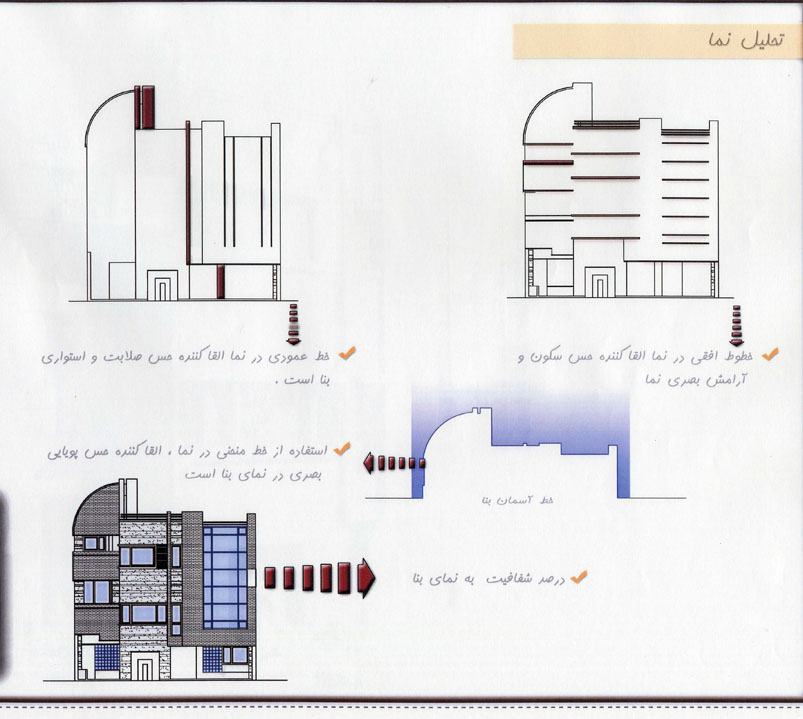 تحلیل نما
خطوط افقی در نما القا کننده حس سکون و
آرامش بصری نما
خط عمودی در نما القا کننده حس صلابت و استواری
بنا است .
استفاده از خط منحنی در نما ، القا کننده حس پویایی
بصری در نمای بنا است
خط آسمان بنا
درصد شفافیت به نمای بنا